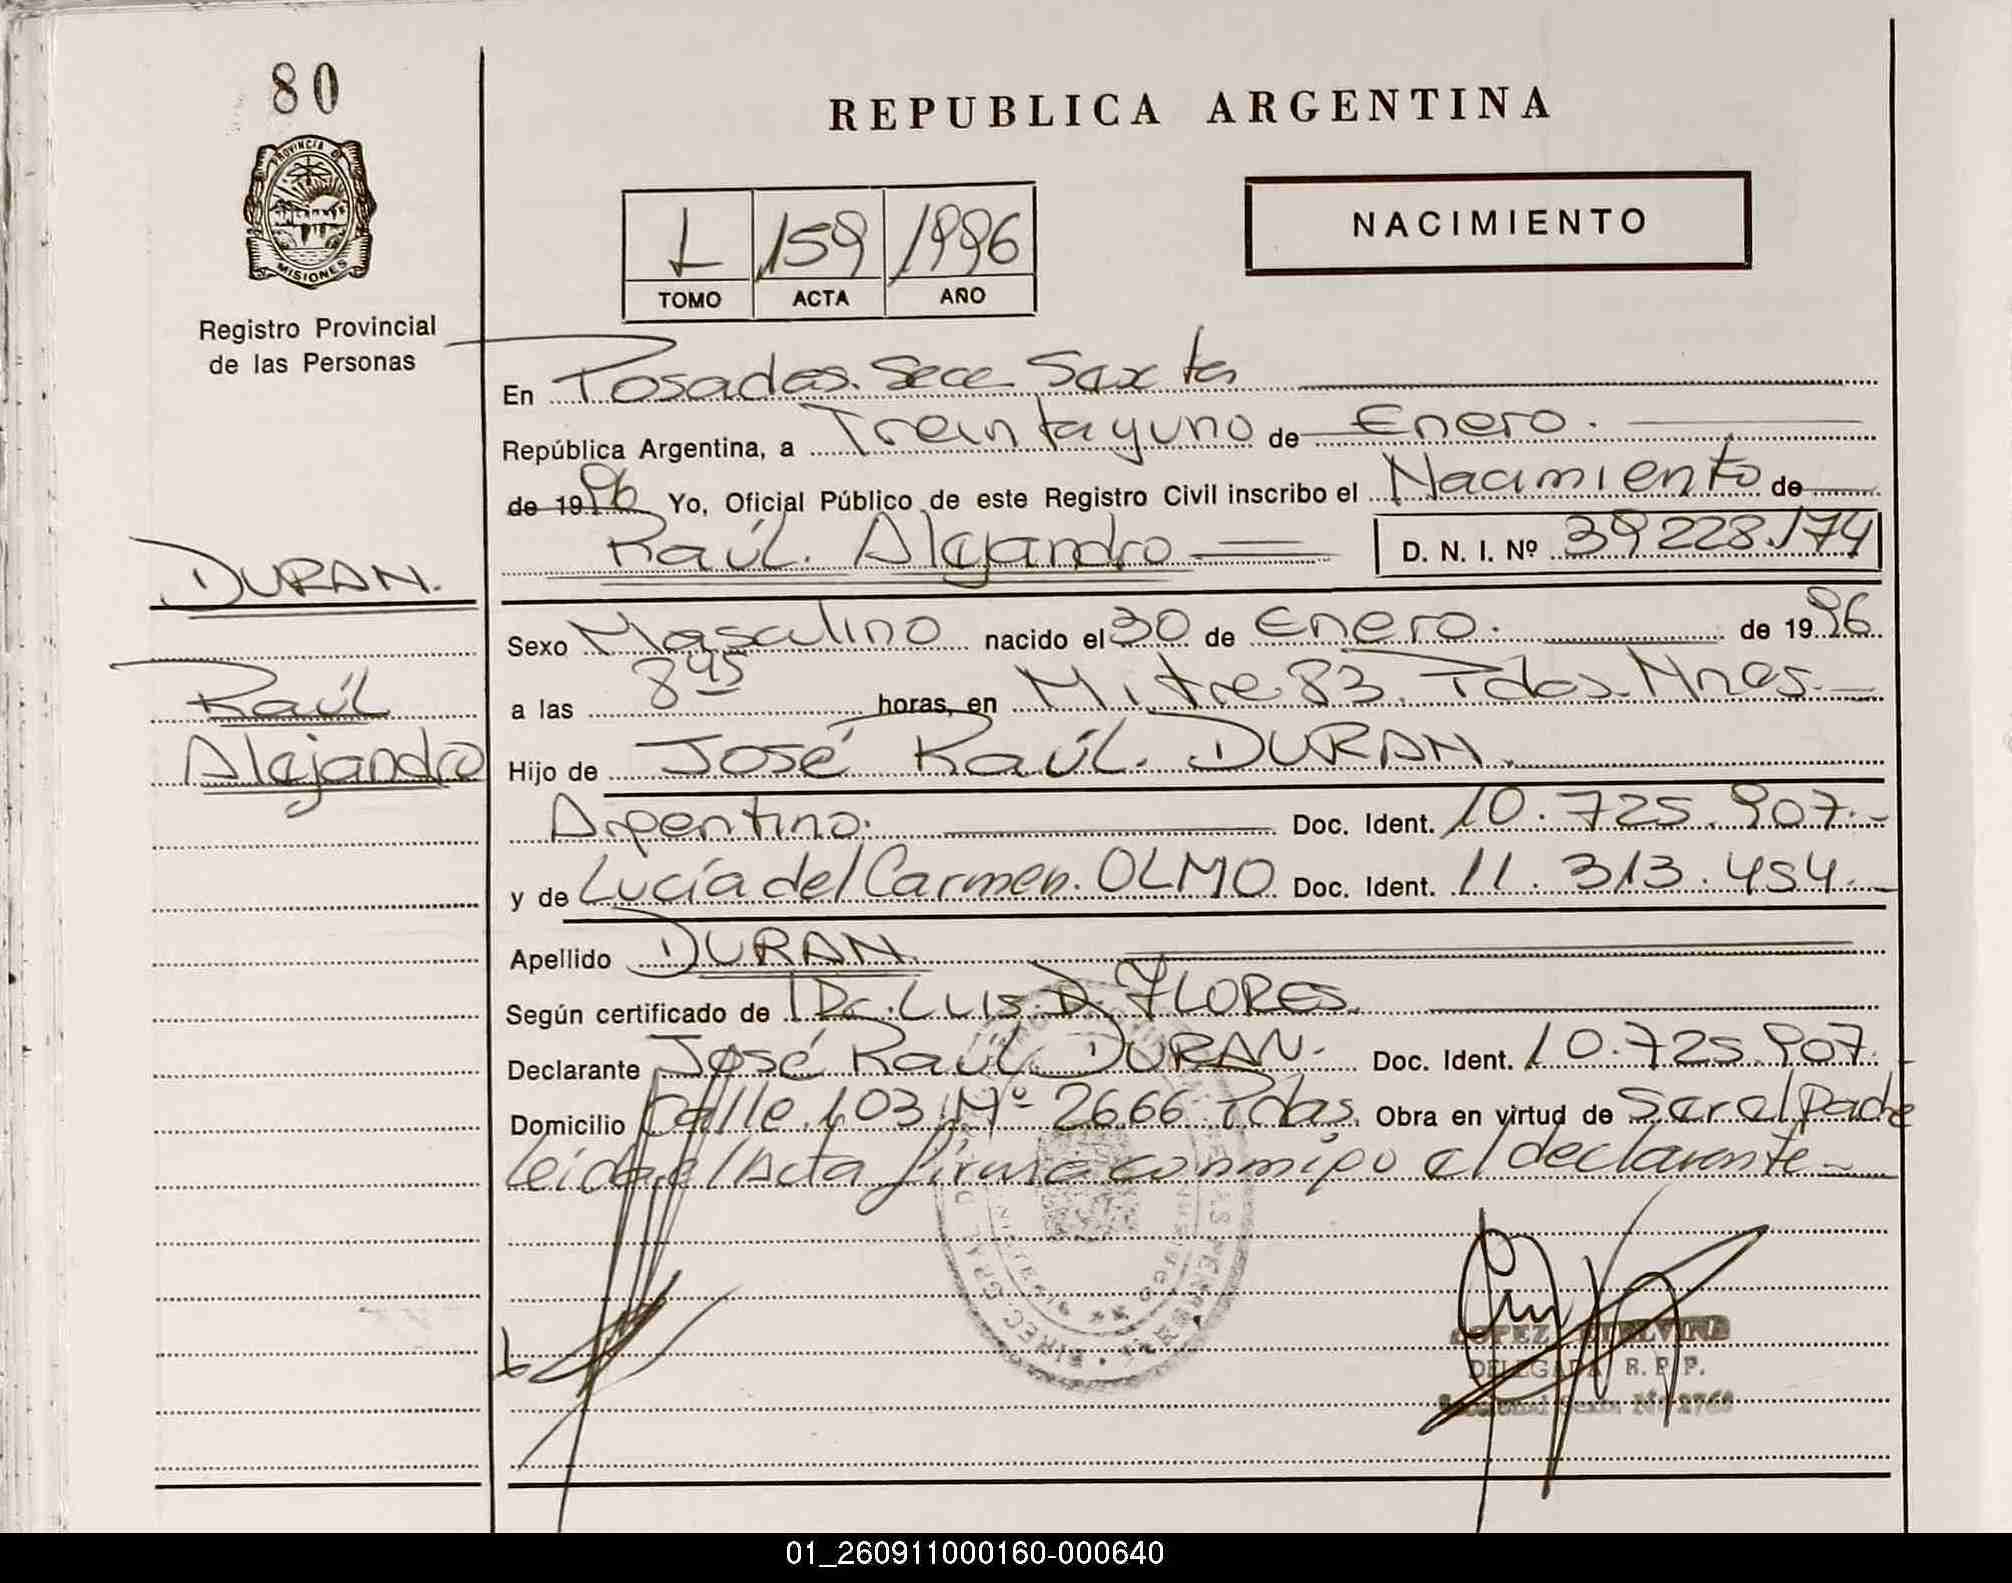 80
REPUBLICA ARGENTINA
PROVINCIA DE
MISIONES
Registro Provincial
de las Personas
I 159 1996
TOMO ACTA AÑO
NACIMIENTO
En Posadas. Secc Sexta
República Argentina, a Treintayuno de Enero.
de 1996 Yo, Oficial Público de este Registro Civil inscribo el Nacimiento de
Raúl. Alejandro D. N. I. Nº 39228.174
DURAN.
Raúl
Alejandro
Sexo Masculino nacido el 30 de Enero. de 1996
a las 8 45 horas, en Mitre 83. Pdas. Mnes.
Hijo de José Raúl. DURAN.
Argentino. Doc. Ident. 10.725.907.-
y de Lucía del Carmen. OLMO Doc. Ident. 11.313.454.-
Apellido DURAN.
Según certificado de Dr. LUIS. D. FLORES.
Declarante José Raúl DURAN.- Doc. Ident. 10.725.907.
Domicilio Calle 103 Nº 2666 Pdas. Obra en virtud de Ser el padre
leida el Acta firma conmigo el declarante-
LOPEZ
DELEGADA R. P. P.
Seccional Sexta Nº 2768
01_260911000160-000640